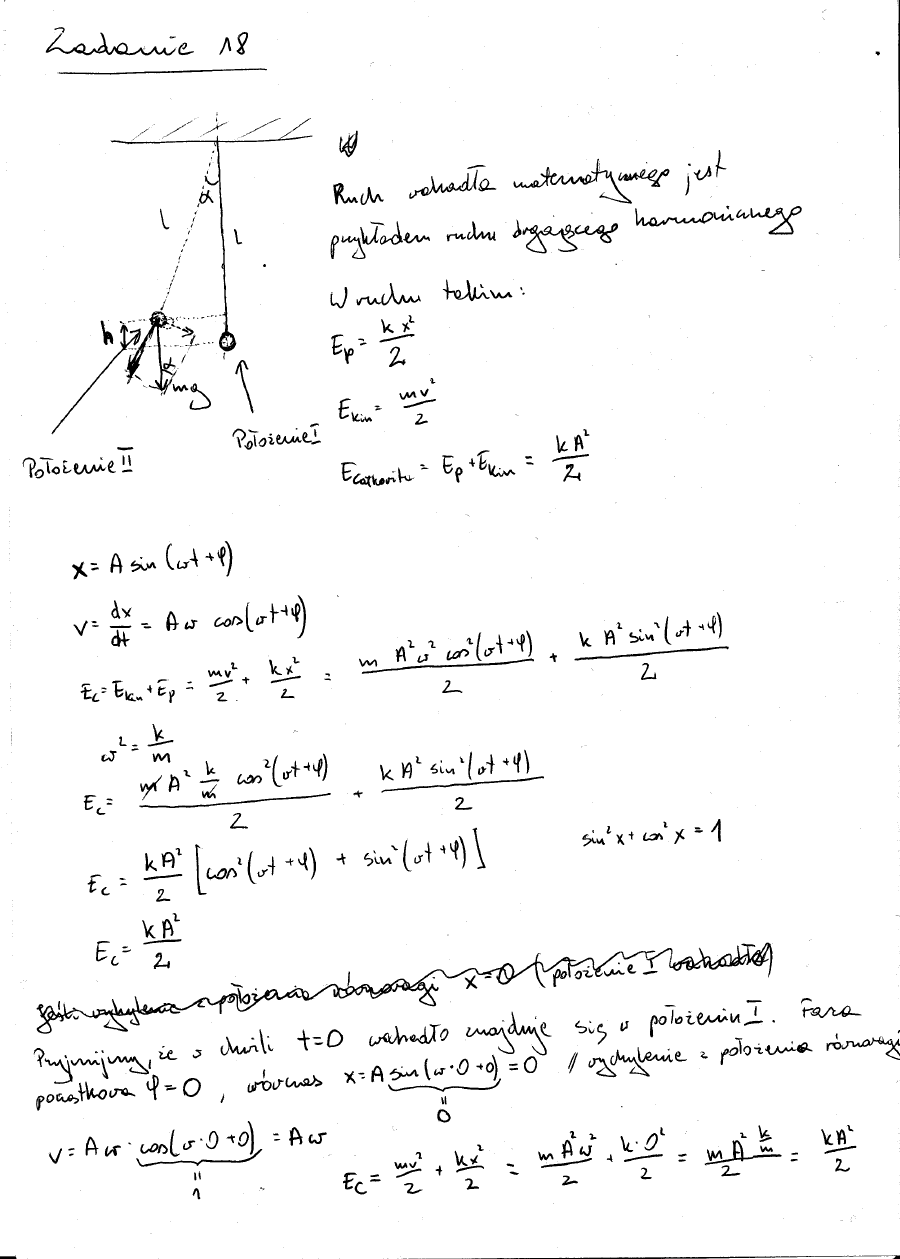 Zadanie 18
Ruch wahadła matematycznego jest
przykładem ruchu drgającego harmonicznego
W ruchu takim:
E_p = kx²/2
E_kin = mv²/2
E_całkowita = E_p + E_kin = kA²/2
α
l
l
h
α
mg
Położenie I
Położenie II
x = A sin(ωt+φ)
v = dx/dt = Aω cos(ωt+φ)
E_c = E_kin + E_p = mv²/2 + kx²/2 = m A²ω² cos²(ωt+φ)/2 + k A² sin²(ωt+φ)/2
ω² = k/m
E_c = m A² k/m cos²(ωt+φ)/2 + k A² sin²(ωt+φ)/2
E_c = kA²/2 [cos²(ωt+φ) + sin²(ωt+φ)] sin²x + cos²x = 1
E_c = kA²/2
położenia równowagi x=0 (położenie I wahadła)
Przyjmijmy, że w chwili t=0 wahadło znajduje się w położeniu I. Faza
początkowa φ=0, wówczas x = A sin(ω·0+0) = 0 // wychylenie z położenia równowagi
= 0
v = Aω · cos(ω·0+0) = Aω
= 1
E_c = mv²/2 + kx²/2 = m A²ω²/2 + k·0²/2 = m A² k/m /2 = kA²/2